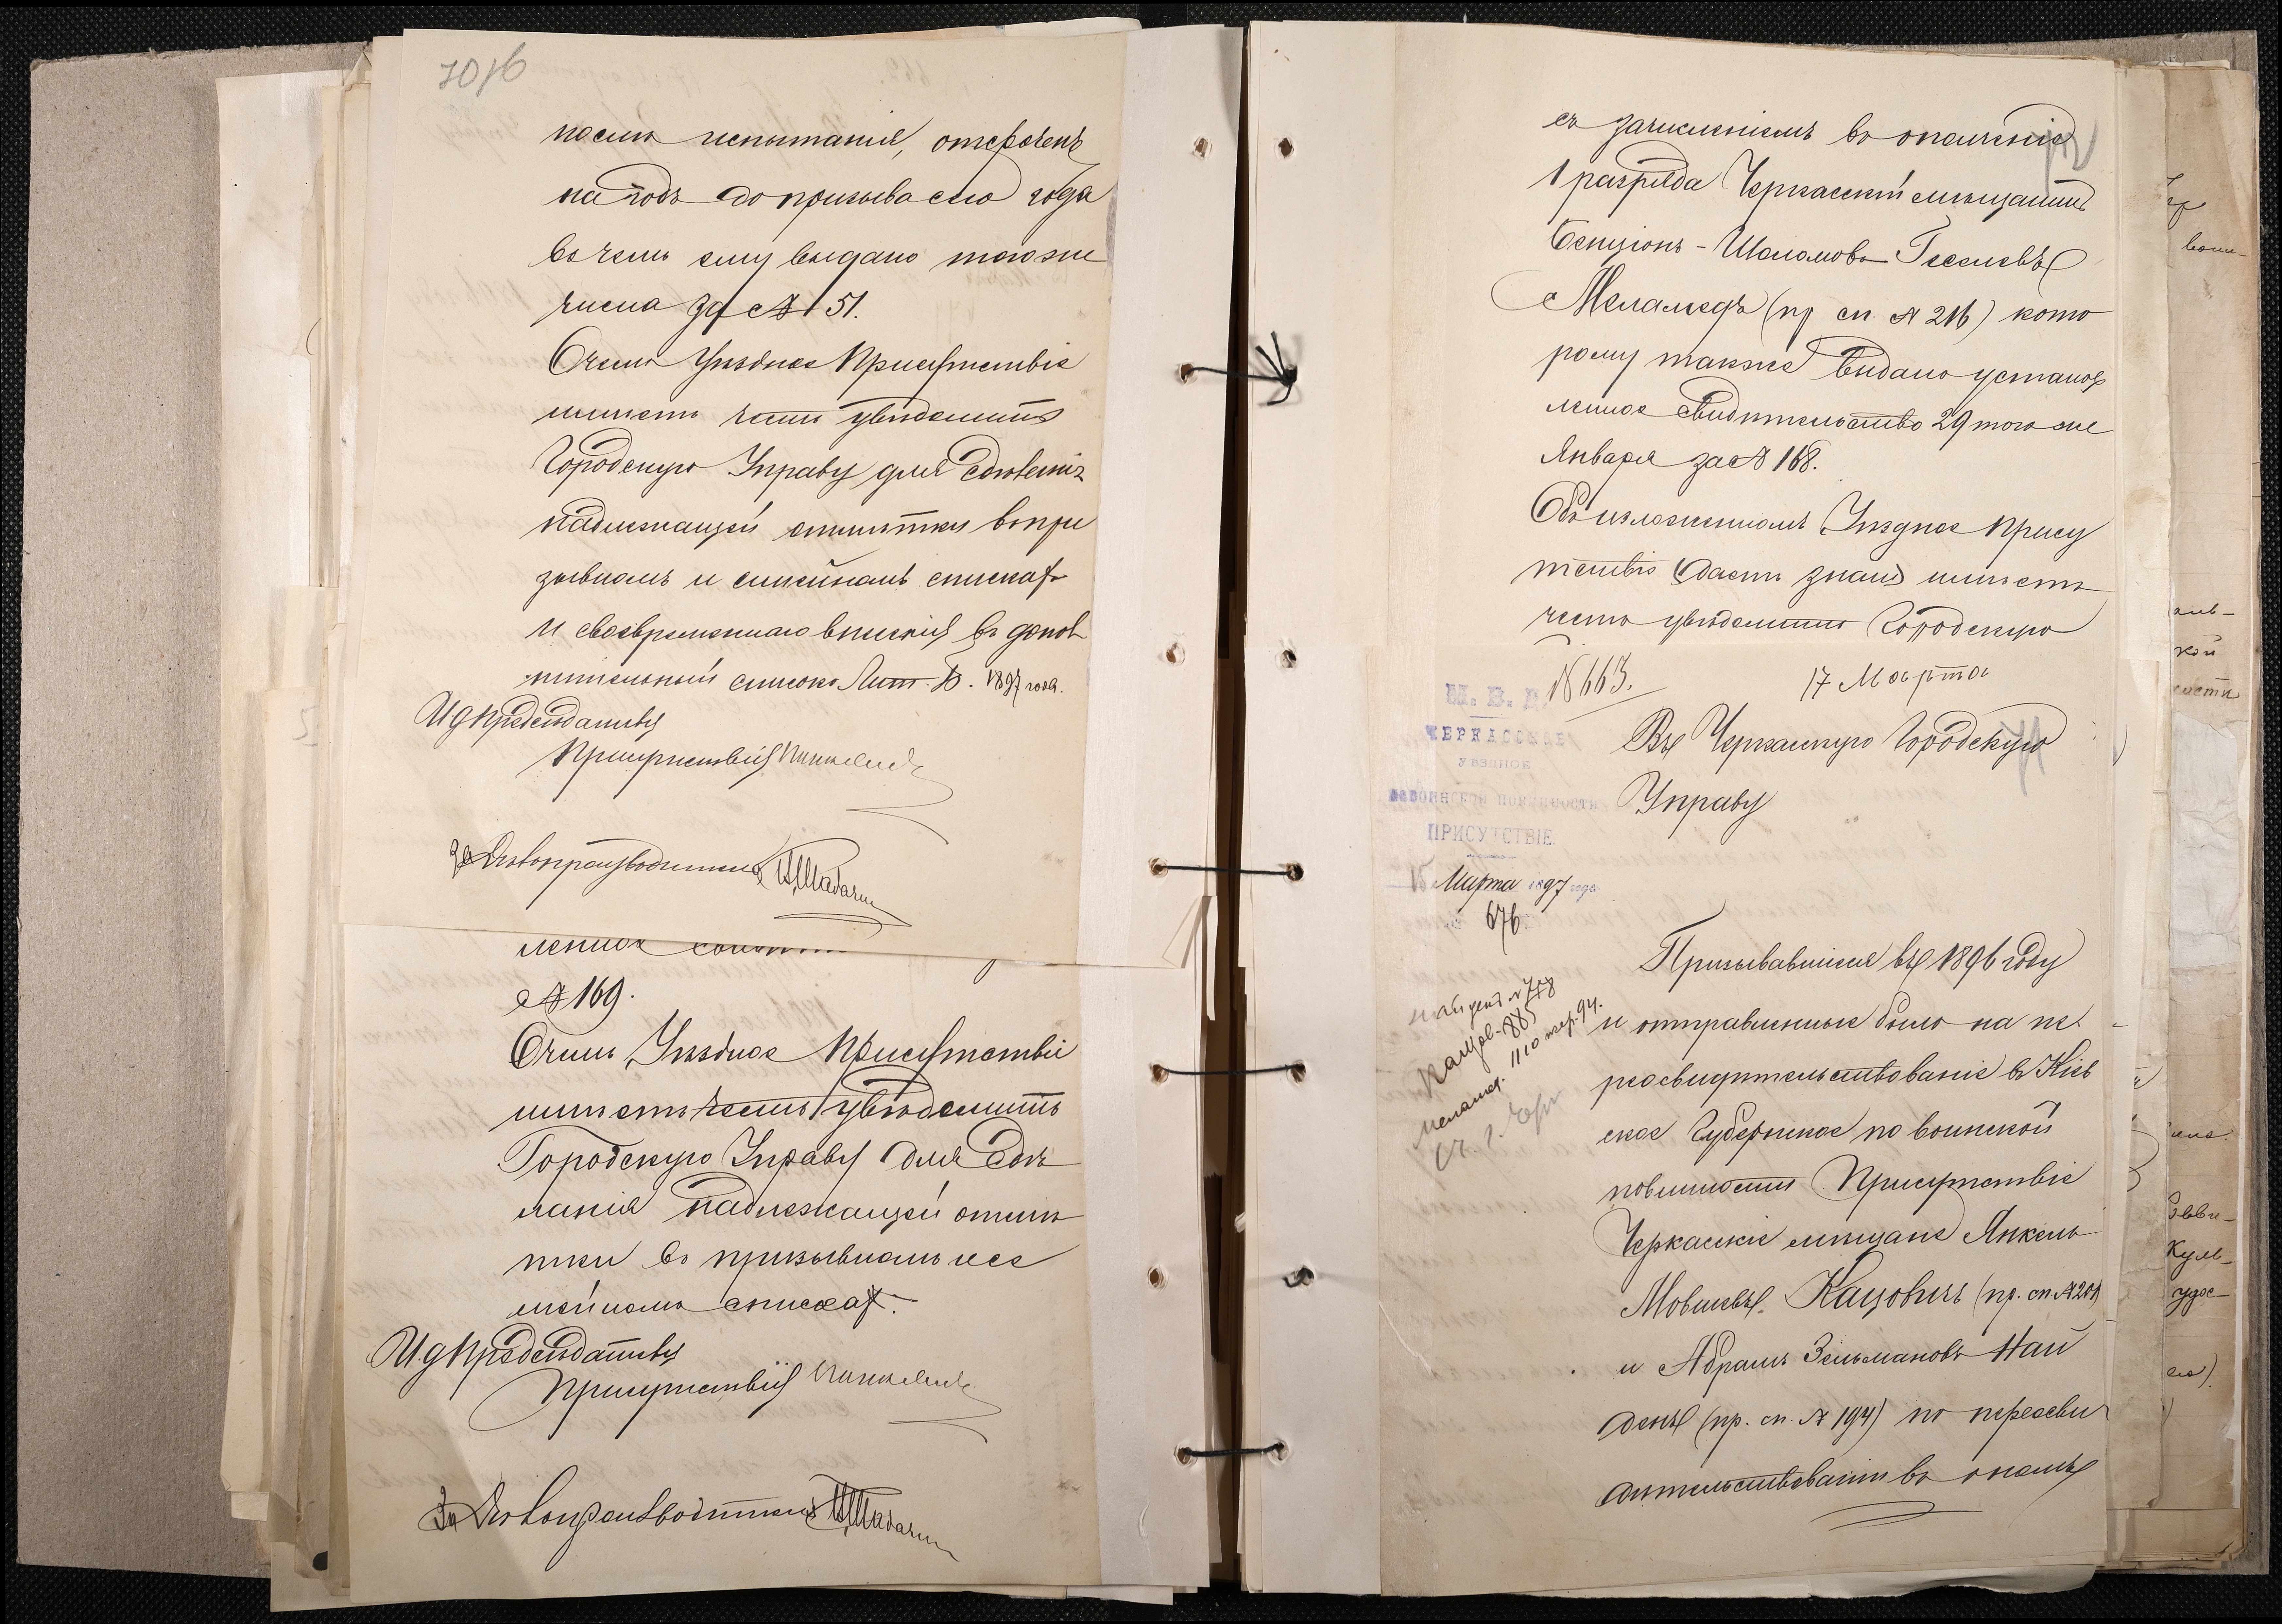 70/6
после испытанія, отсроченъ
на годъ до призыва сего года
въ чемъ ему выдано того же
числа за № 151.
О чемъ Уѣздное Присутствіе
имѣетъ честь увѣдомить
Городскую Управу для сдѣланія
надлежащей отмѣтки въ при
зывномъ и семейномъ спискахъ
и своевременнаго внесенія въ допол
нительный списокъ Лит. Б. 1897 года.
И д Предсѣдательствующаго
Присутствія
За Дѣлопроизводителя
ленное
№ 169.
О чемъ Уѣздное Присутствіе
имѣетъ честь увѣдомить
Городскую Управу для сдѣ
ланія надлежащей отмѣ
тки въ призывномъ и се
мейномъ спискахъ.
И. д Предсѣдательствующаго
Присутствія
За Дѣлопроизводителя
съ зачисленіемъ въ ополченіе
1 разряда Черкасскій мѣщанинъ
Бенціонъ-Шоломовъ Геселевъ
Меламедъ (пр сп. № 216) кото
рому также выдано установ
ленное свидѣтельство 29 того же
Января за № 168.
Объ изложенномъ Уѣздное Прису
тствіе даетъ знать имѣетъ
честь увѣдомить Городскую
№ 663.
17 Марта
М. В. Д.
ЧЕРКАССКОЕ
УѢЗДНОЕ
ПО ВОИНСКОЙ ПОВИННОСТИ
ПРИСУТСТВІЕ.
15 Марта 1897 года
№ 676
Въ Черкасскую Городскую
Управу
Найденъ № 778
Кацов. 885
Меламед. 1110 пер. 94.
Призывавшіеся въ 1896 году
и отправленные было на пе
реосвидѣтельствованіе въ Кіев
ское Губернское по воинской
повинности Присутствіе
Черкасскіе мѣщане Янкель
Мовшевъ Кацовичъ (пр. сп. № 201)
и Абрамъ Зельмановъ Най
денъ (пр. сп. № 194) по переосви
дѣтельствованіи въ ономъ